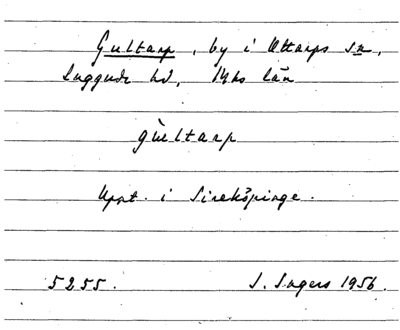 Gultarp, by i Ottarps sn,
Luggude hd, Mhs län
gu̇ltarp
Uppt. i Sireköpinge.
5255. J. Ingers 1956.